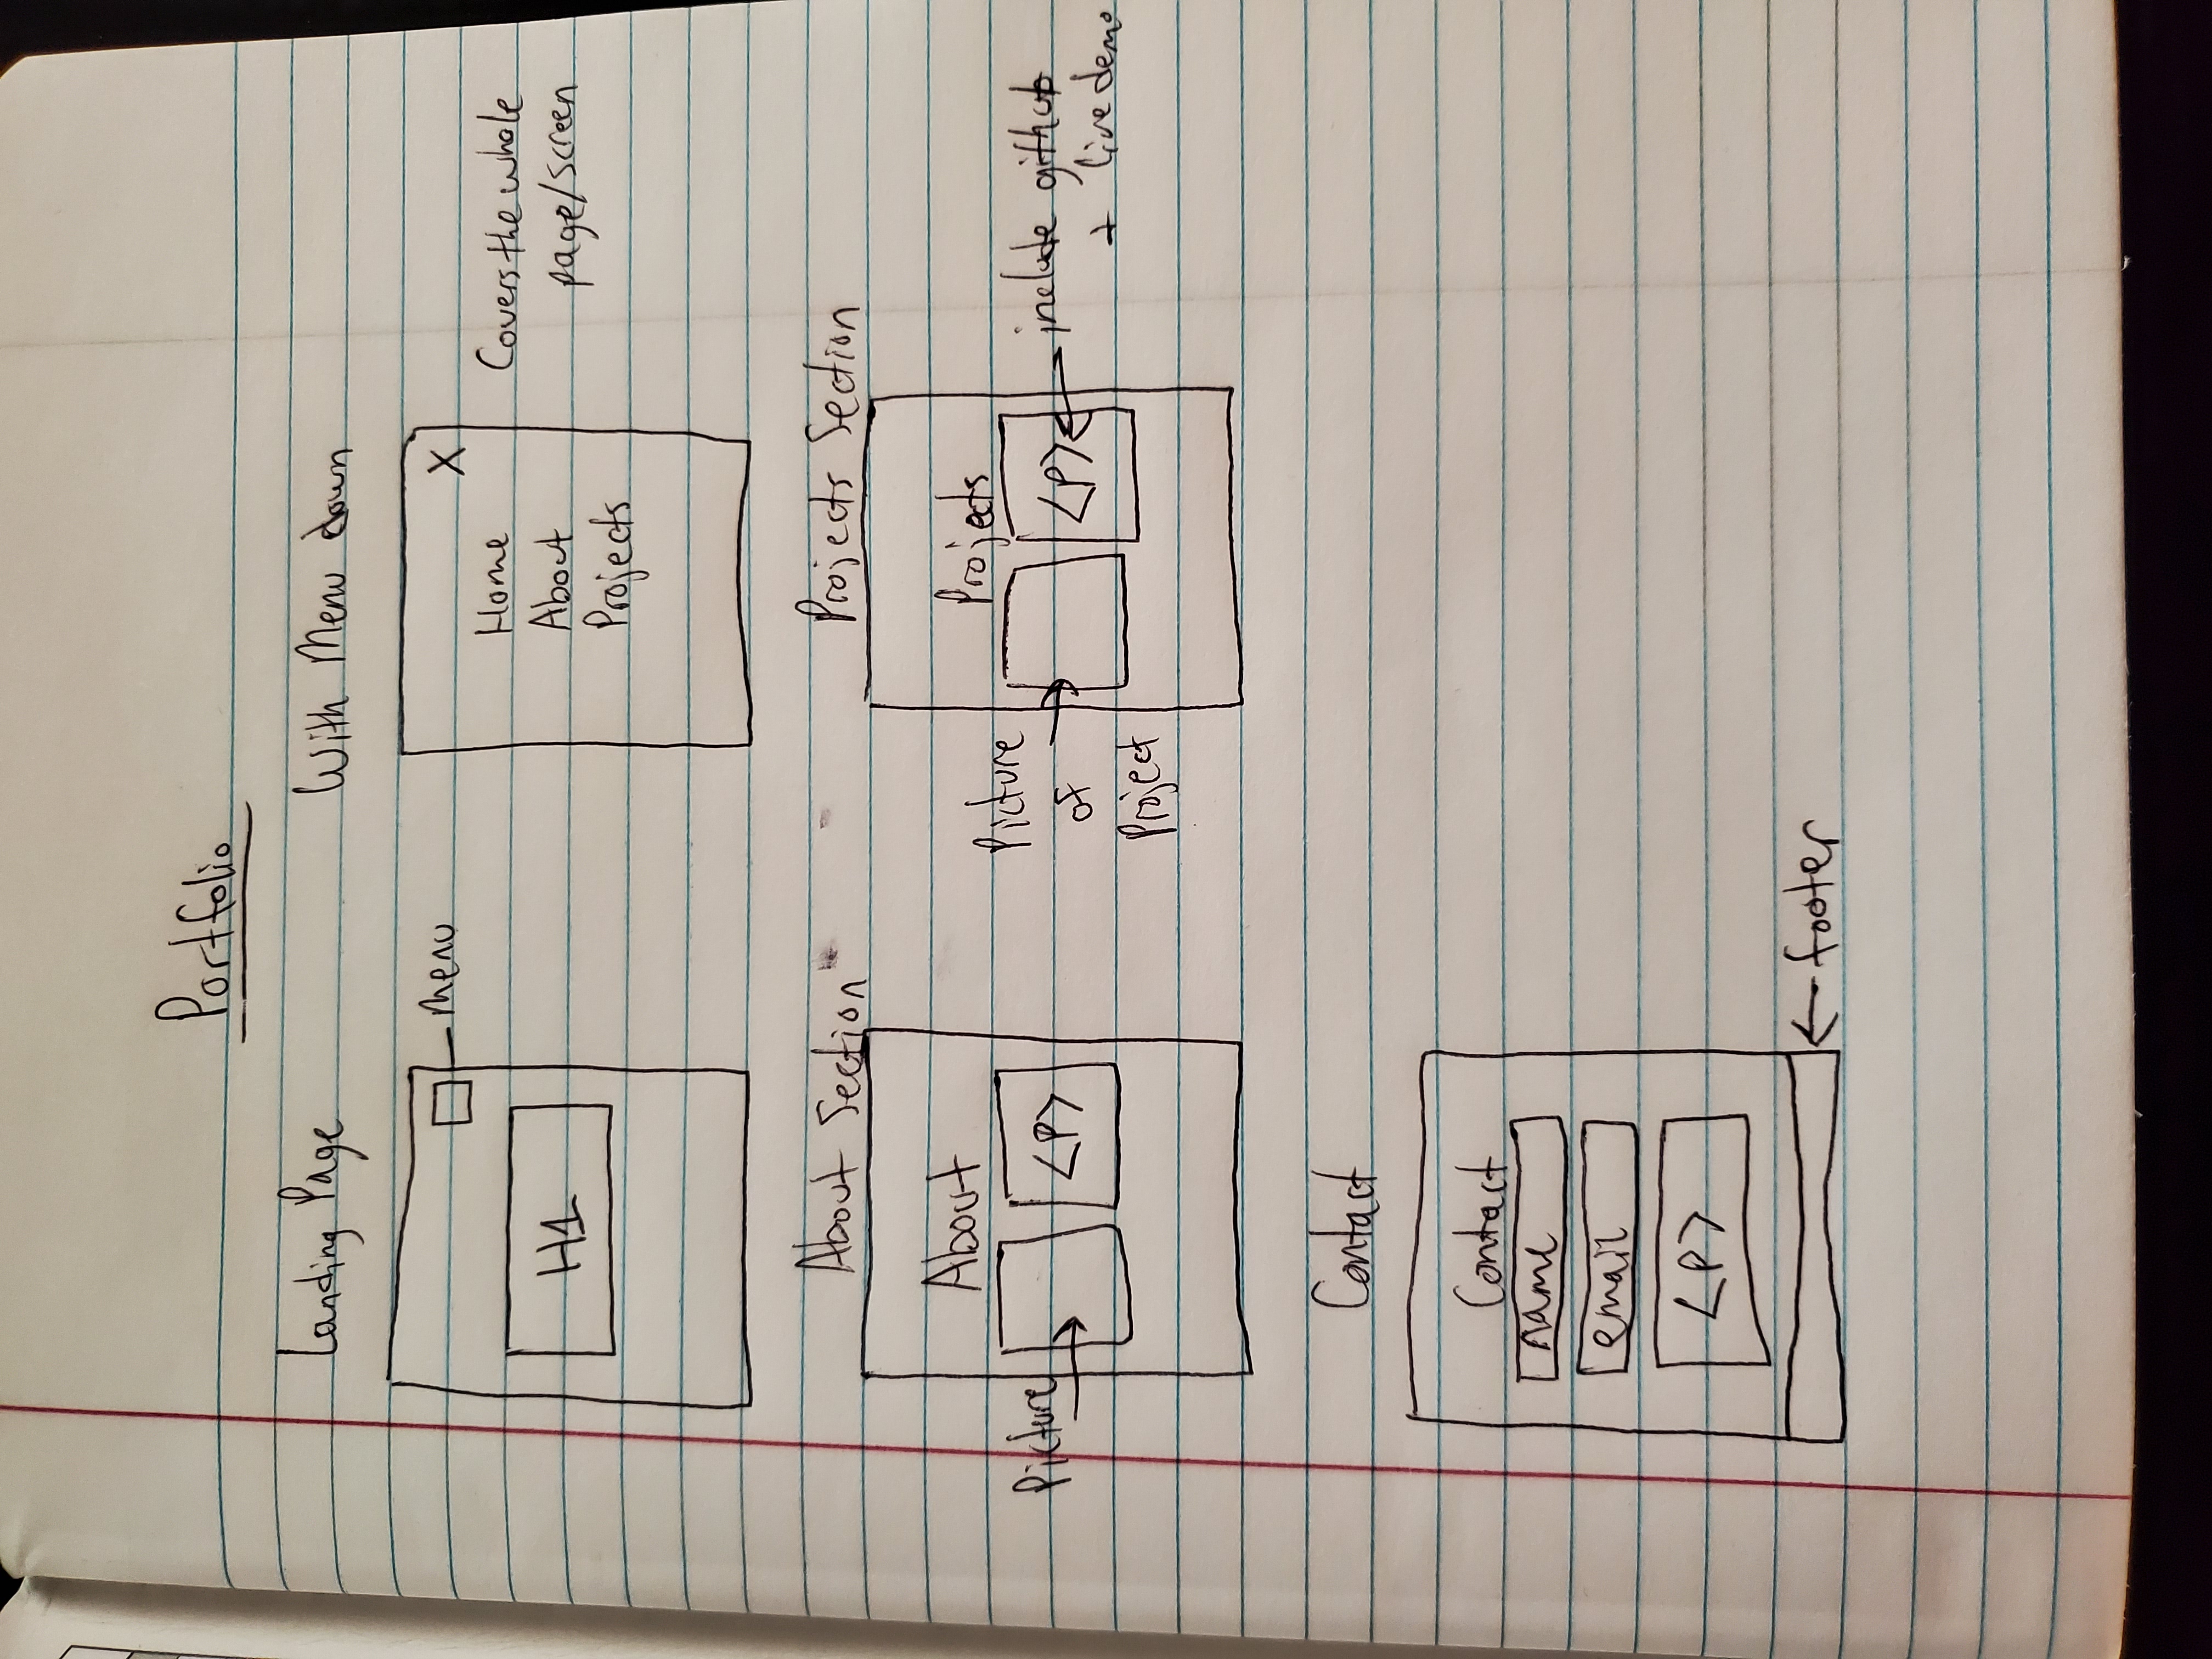 Portfolio
Landing Page
With Menu down
menu
H1
X
Home
About
Projects
Covers the whole
page/screen
About Section
Projects Section
About
Picture
<P>
Projects
Picture
of
Project
<P>
include github
+ live demo
Contact
Contact
name
email
<P>
footer